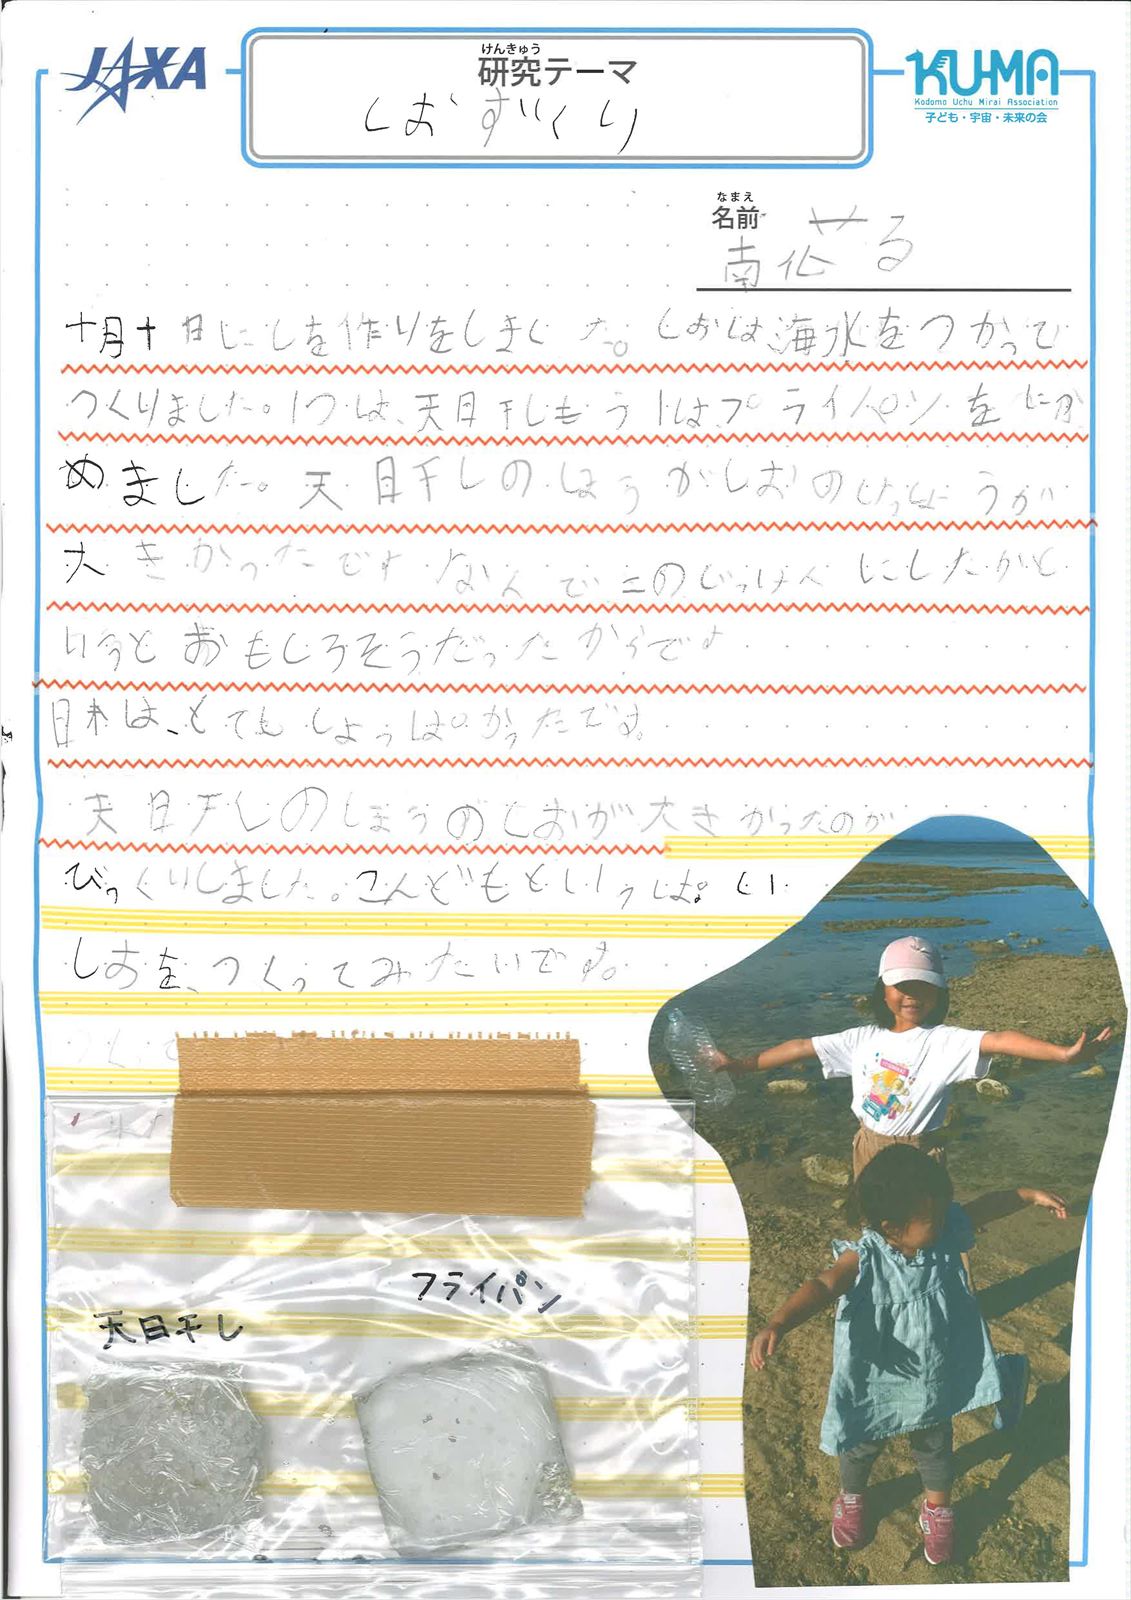 JAXA
けんきゅう
研究テーマ
しおずくり
KU-MA
Kodomo Uchu Mirai Association
子ども・宇宙・未来の会
なまえ
名前
南
る
十月十日にしを作りをしました。しおは、海水をつかって
つくりました。1つは、天日干しもう1は、フライパンを
めました。天日干しのほうがしおのけっしょうが
大きかったですなんでこのじっけんにしたかと
いうとおもしろそうだったからです
は、とてもしょっぱかったです。
天日干しのほうのしおが大きかったのが
びっくりしました。こんどもといっぱい
しおを、つくってみたいです。
フライパン
天日干し